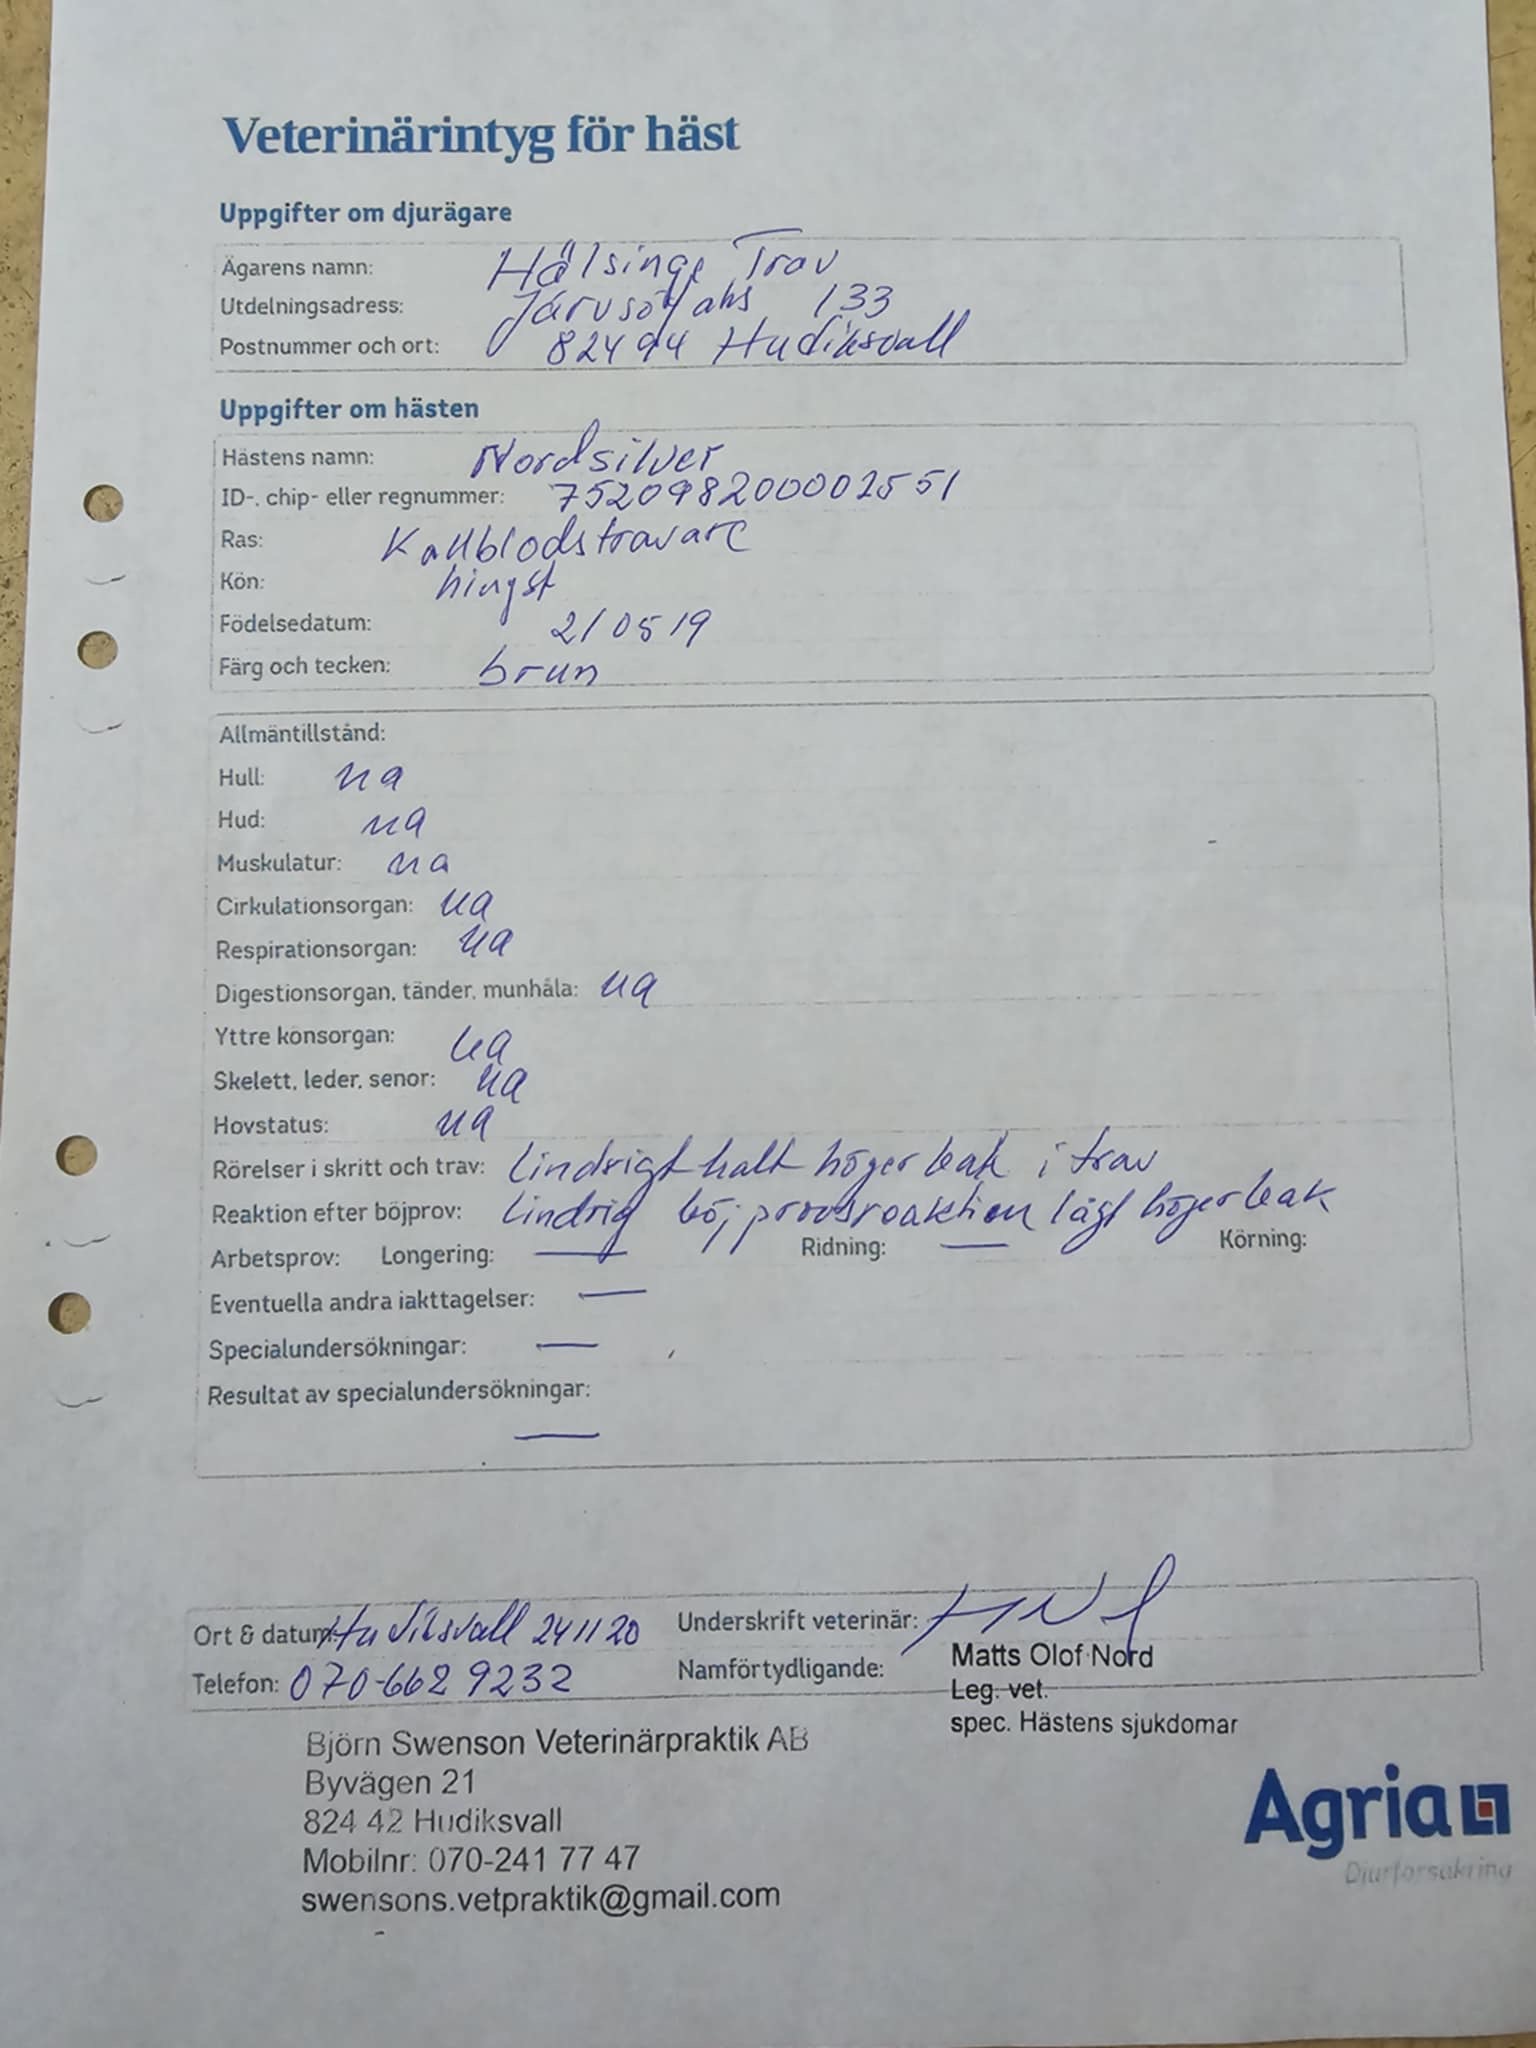 Veterinärintyg för häst
Uppgifter om djurägare
Ägarens namn: Hälsinge Trav
Utdelningsadress: Järvsöv aks 133
Postnummer och ort: 82494 Hudiksvall
Uppgifter om hästen
Hästens namn: Nordsilver
ID-, chip- eller regnummer: 752098200002551
Ras: Kallblodstravare
Kön: hingst
Födelsedatum: 210519
Färg och tecken: brun
Allmäntillstånd:
Hull: ua
Hud: ua
Muskulatur: ua
Cirkulationsorgan: ua
Respirationsorgan: ua
Digestionsorgan, tänder, munhåla: ua
Yttre könsorgan: ua
Skelett, leder, senor: ua
Hovstatus: ua
Rörelser i skritt och trav: lindrigt halt höger bak i trav
Reaktion efter böjprov: lindrig böjprovsreaktion lågt höger bak
Arbetsprov: Longering: — Ridning: — Körning:
Eventuella andra iakttagelser: —
Specialundersökningar: —
Resultat av specialundersökningar:
—
Ort & datum: Hudiksvall 241120 Underskrift veterinär:
Telefon: 070-662 9232 Namförtydligande: Matts Olof Nord
Leg. vet.
spec. Hästens sjukdomar
Björn Swenson Veterinärpraktik AB
Byvägen 21
824 42 Hudiksvall
Mobilnr: 070-241 77 47
swensons.vetpraktik@gmail.com
Agria
Djurförsäkring